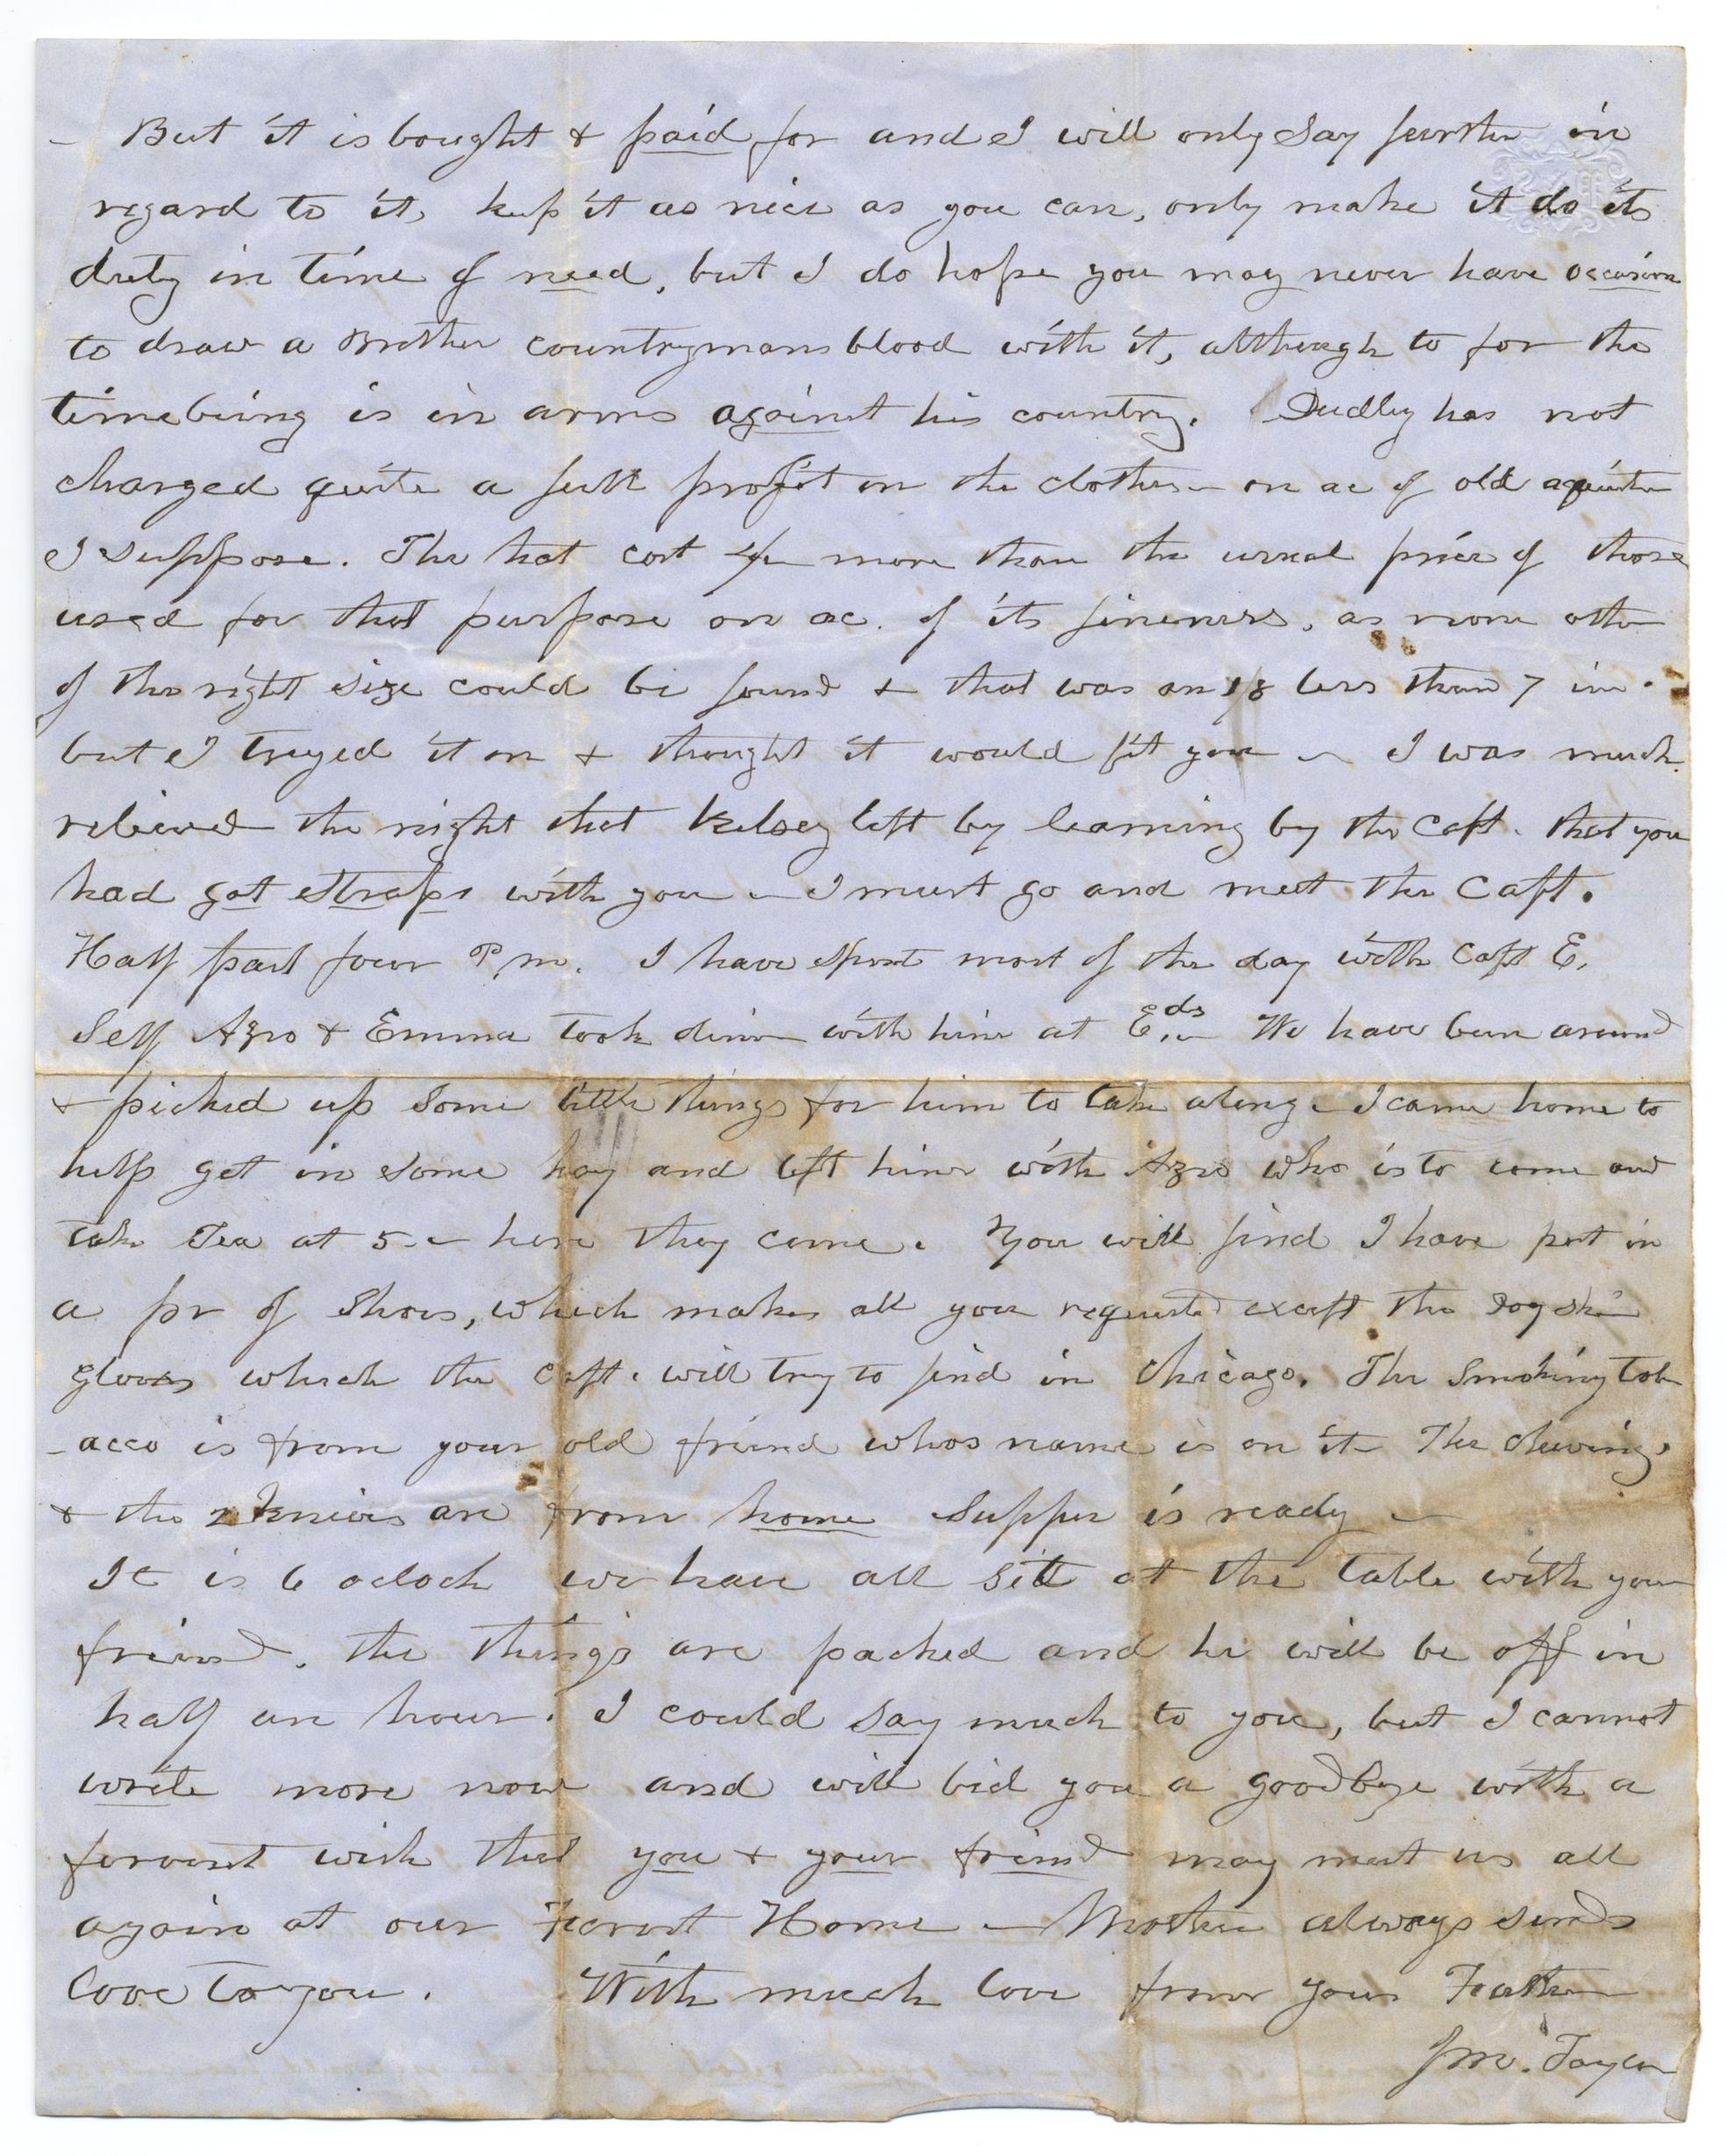 - But it is bought & paid for and I will only say further in
regard to it, keep it as nice as you can, only make it do its
duty in time of need, but I do hope you may never have occasion
to draw a Brother countrymans blood with it, although to for the
timebeing is in arms against his country. Dudley has not
charged quite a full profit on the clothes - on ac of old
I suppose. The hat cost more than the usual price of those
used for that purpose on ac. of its fineness, as none other
of the right size could be found & that was an 1/8 less than 7 in.
but I tryed it on & thought it would fit you - I was much
relieved the night that Kelsey left by learning by the Capt. that you
had got straps with you - I must go and meet the Capt.
Half past four P.m. I have spent most of the day with Capt E.
Self Azro & Emma took dinner with him at E.ds - We have been around
& picked up some little things for him to take along - I came home to
help get in some hay and left him with Azro who is to come and
take Tea at 5 - here they come. You will find I have put in
a pr of Shoes, which makes all you requested except the Dog skin
gloves which the Capt. will try to find in Chicago. The Smoking tob
-acco is from your old friend whos name is on it - The chewing,
& the 2 knives are from home Supper is ready -
It is 6 oclock we have all sit at the table with your
friend. the things are packed and he will be off in
half an hour. I could say much to you, but I cannot
write more now and will bid you a goodbye with a
fervent wish that you & your friend may meet us all
again at our Forest Home - Mother always sends
love to you. With much love from your Father
Jm. Taylor